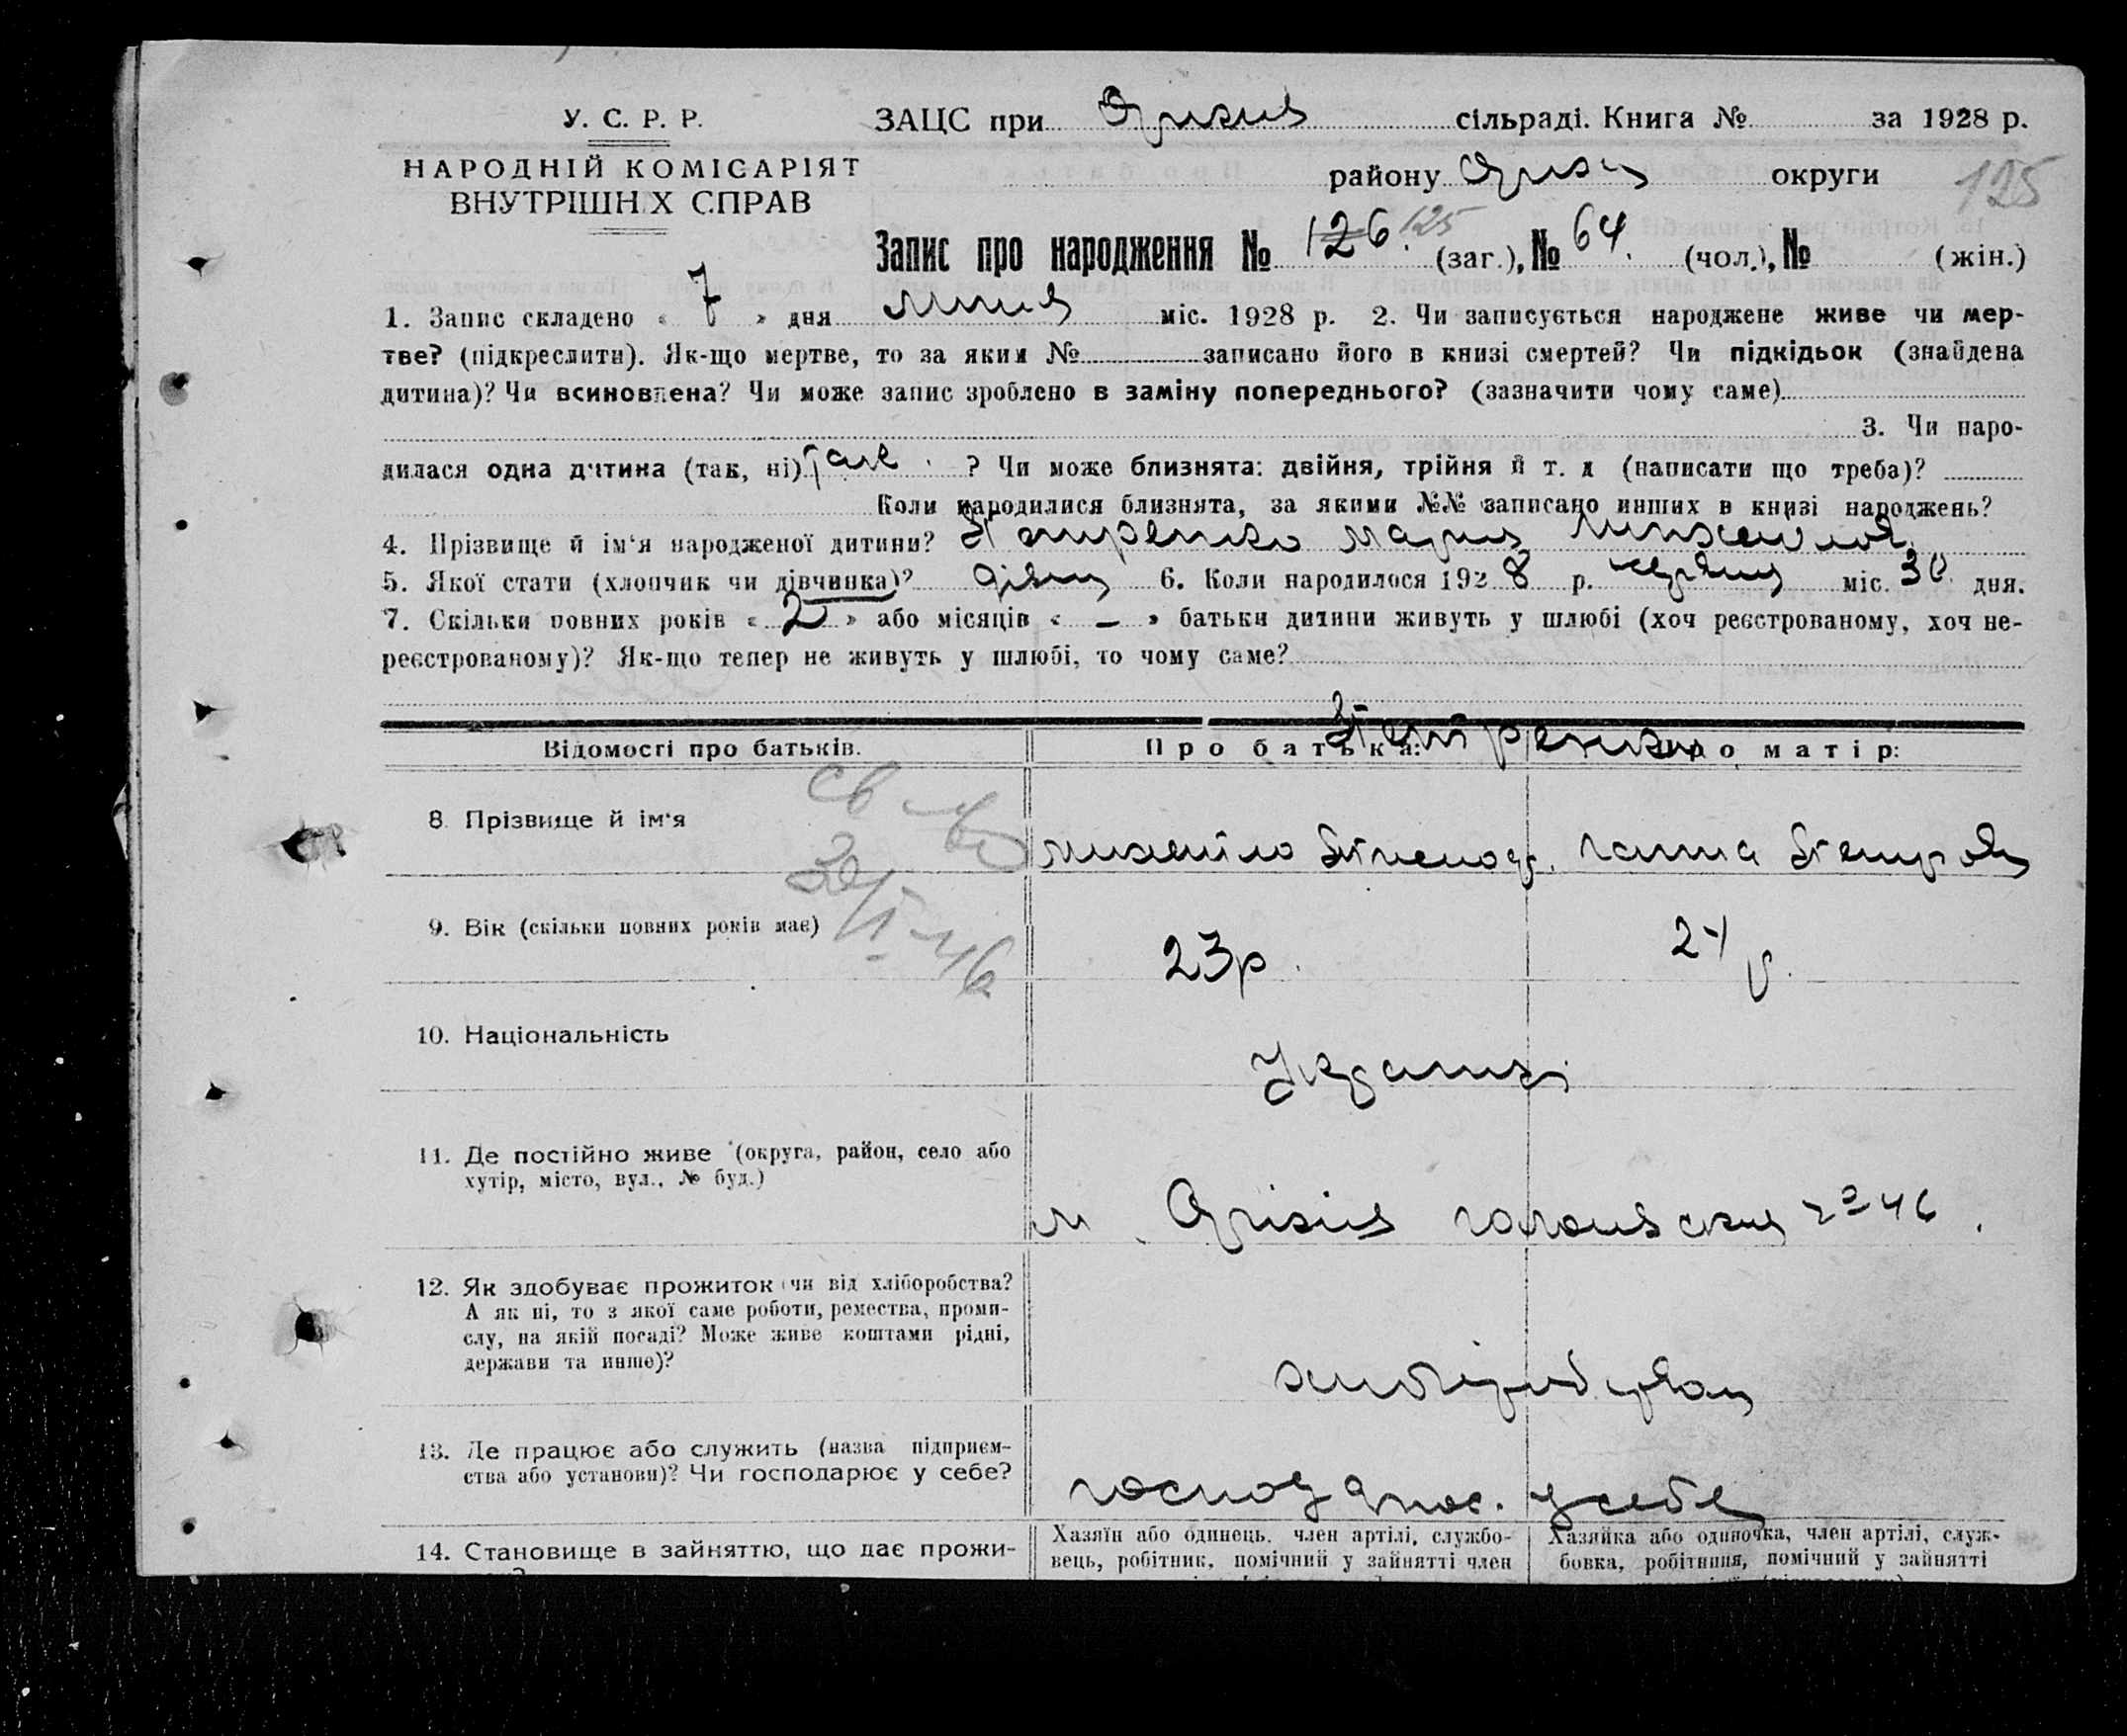 У. С. Р. Р.
НАРОДНІЙ КОМІСАРІЯТ
ВНУТРІШНІХ СПРАВ
ЗАЦС при сільраді. Книга № за 1928 р.
району округи
125
Запис про народження № 126. 125 (заг.), № 64. (чол.), № (жін.)
1. Запис складено « 7 » дня липня міс. 1928 р. 2. Чи записується народжене живе чи мер-
тве? (підкреслити). Як-що мертве, то за яким № записано його в книзі смертей? Чи підкідьок (знайдена
дитина)? Чи всиновлена? Чи може запис зроблено в заміну попереднього? (зазначити чому саме)
3. Чи наро-
дилася одна дитина (так, ні) так. ? Чи може близнята: двійня, трійня й т. д (написати що треба)?
Коли народилися близнята, за якими №№ записано инших в книзі народжень?
4. Прізвище й ім'я народженої дитини? Петренко Мария
5. Якої стати (хлопчик чи дівчинка)? дівч 6. Коли народилося 1928 р. червня міс. 30 дня.
7. Скільки повних років « 2 » або місяців « — » батьки дитини живуть у шлюбі (хоч реєстрованому, хоч не-
реєстрованому)? Як-що тепер не живуть у шлюбі, то чому саме?
Відомості про батьків. Про батька: Про матір:
Петренко
8. Прізвище й ім'я Михайло Ганна Петров
св-во
20/I-46
9. Вік (скільки повних років має) 23р. 24 р.
10. Національність Українці
11. Де постійно живе (округа, район, село або
хутір, місто, вул., № буд.)
м. № 46.
12. Як здобуває прожиток (чи від хліборобства?
А як ні, то з якої саме роботи, ремества, проми-
слу, на якій посаді? Може живе коштами рідні,
держави та инше)?
13. Де працює або служить (назва підприєм-
ства або установи)? Чи господарює у себе?
господарює. у себе
14. Становище в зайняттю, що дає прожи-
Хазяїн або одинець, член артілі, службо-
вець, робітник, помічний у зайнятті член
Хазяйка або одиночка, член артілі, служ-
бовка, робітниця, помічний у зайнятті